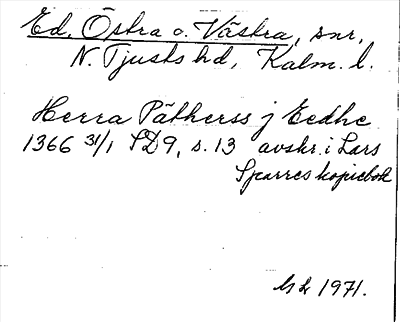 Ed, Östra o. Västra, snr,
N. Tjusts hd, Kalm. l.
Herra Pätherss j Eedhe
1366 31/1 SD 9, s. 13 avskr. i Lars
Sparres kopiebok
1971.